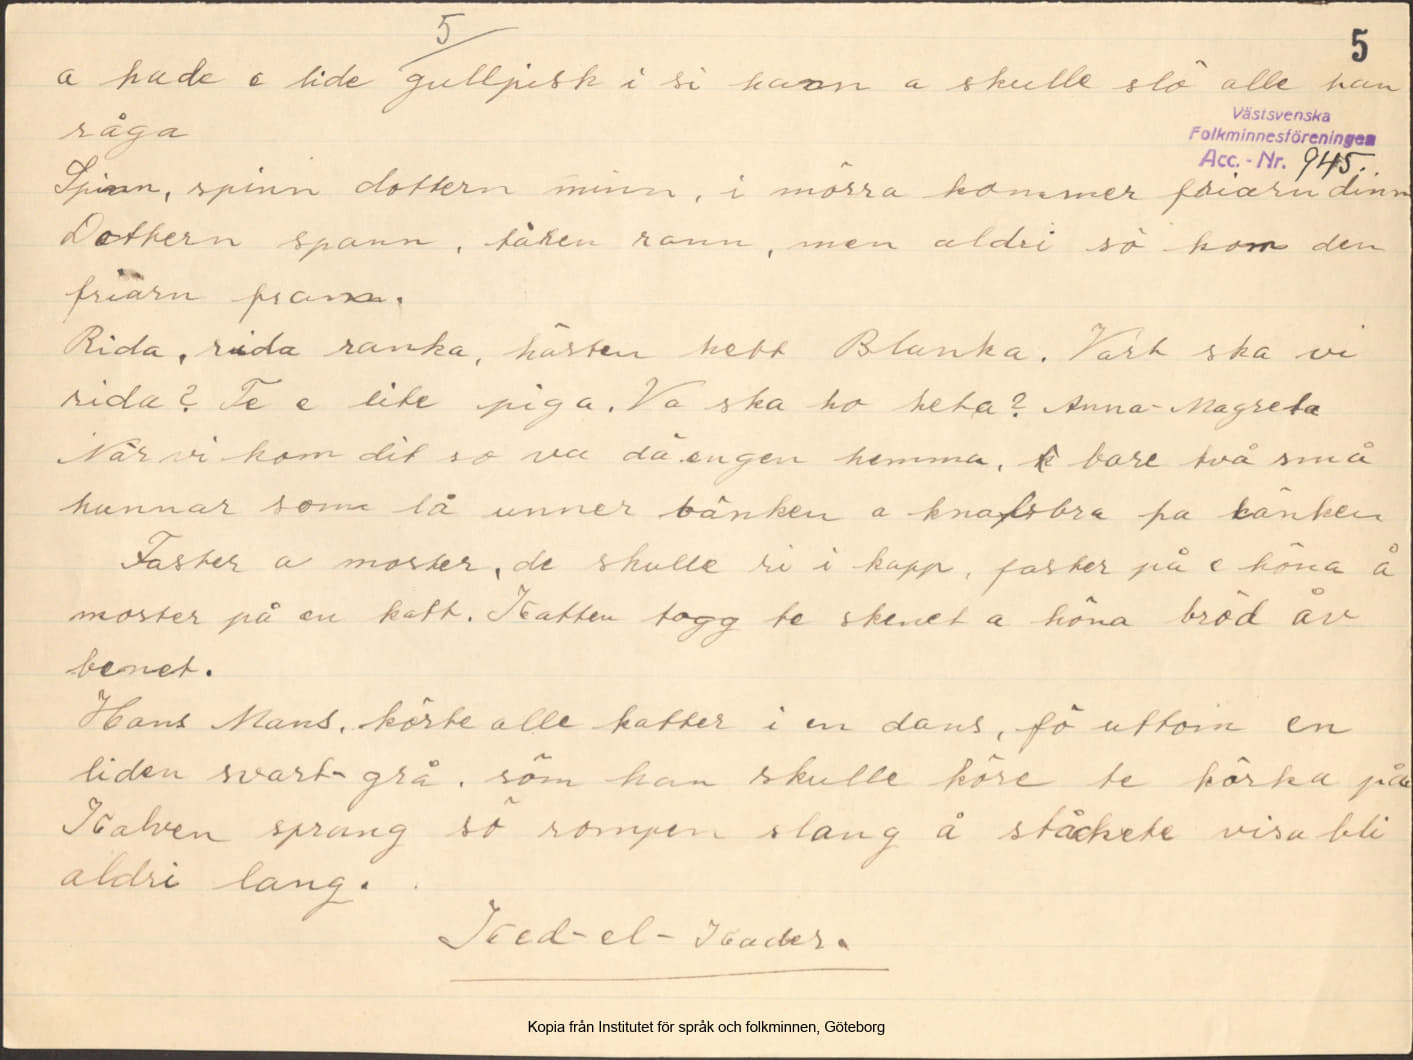 5
5
a hade e lide gullpisk i si hann a skulle slô alle han
råga
Västsvenska
Folkminnesföreningen
Acc.-Nr. 945.
Spinn, spinn dottern minn, i môrra kommer friarn dinn
Dottern spann, tåren rann, men aldri sô kom den
friarn fram.
Rida, rida ranka, hästen hett Blanka. Vart ska vi
rida? Te e lite piga. Va ska ho heta? Anna-Magreta
När vi kom dit so va dä engen hemma, bare två små
hunnar som lå unner bänken a pa bänken
Faster a moster, de skulle ri i kapp, faster på e höna å
moster på en katt. Katten togg te skenet a höna brôd åv
benet.
Hans Mans, körte alle katter i en dans, fô uttom en
liden svart-grå. sôm han skulle köre te körka på
Kalven sprang sô rompen slang å ståckete visa bli
aldri lang.
Ked-el-Kader.
Kopia från Institutet för språk och folkminnen, Göteborg